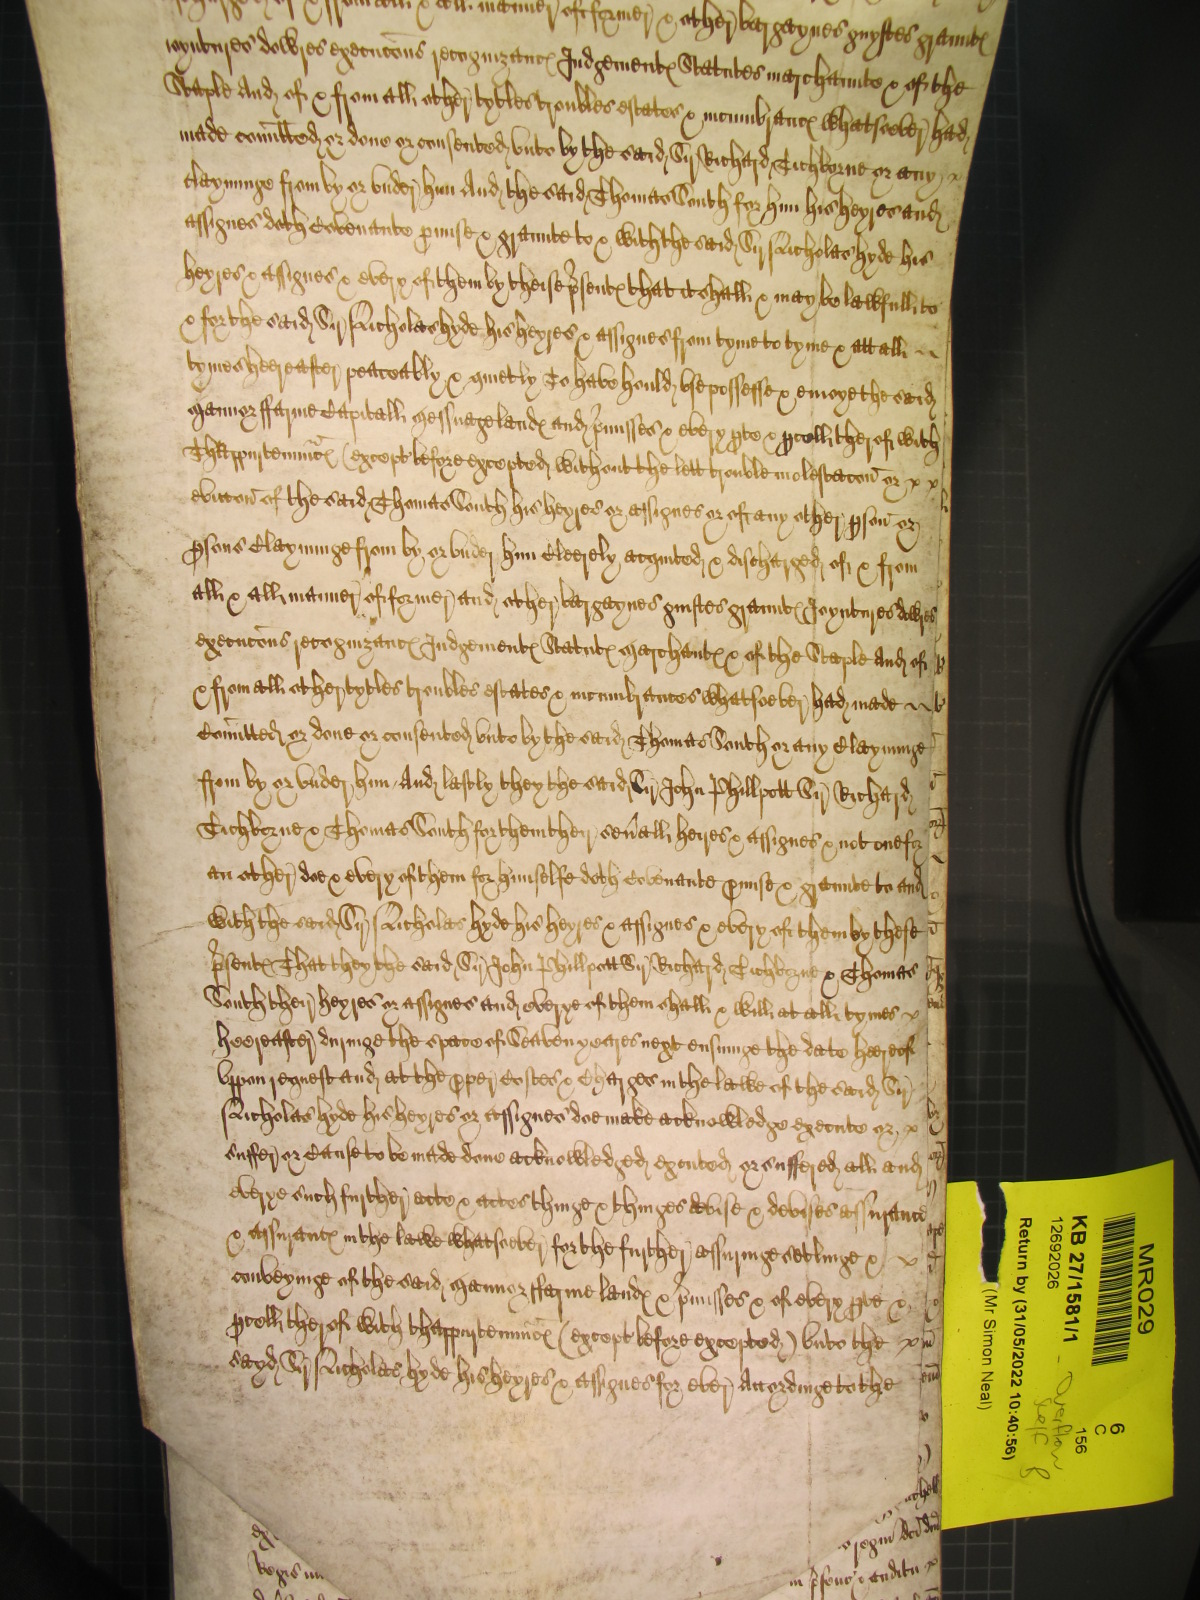 all manner of former & other bargaynes guyftes grauntℯ
joyntures dowres execucōns recognizancℯ Judgementℯ Statutes marchaunte & of the
Staple And of & from all other tytles troubles estates & incumbrancℯ whatsoever had
made com̄itted or done or consented unto by the said Sir Richard Tichborne or any x
clayminge from by or under him And the said Thomas South for him his heyres and
assignes doth Covenante pmise & graunte to & with the said Sir Nicholas Hyde his
heyres & assignes & every of them by theise p̄sentℯ that it shall & may be lawfull to
& for the said Sir Nicholas Hyde his heyres & assignes from tyme to tyme & att all
tymes heereafter peaceably & quietly To have hould use possesse & enioye the said
Mannor ffarme Capitall Messuage landℯ and p̄misses & every pte & pcell therof with
Thappurtenn̄ncℯ (except before excepted without the lett trouble molestacon̄ or x x
eviccon̄ of the said Thomas South his heyres or assignes or of any other pson̄ or
psons Clayminge from by or under him Cleerely acquited & discharged of & from
all & all manner of former and other bargaynes guiftes grauntℯ Joyntures dowres
execucōns recognizancℯ Judgementℯ Statutℯ Marchantℯ & of the Staple And of
& from all other tytles troubles estates & incumbrances whatsoever had made
Com̄itted or done or consented unto by the said Thomas South or any Clayminge
from by or under him And lastly they the said Sir John Phillpott Sir Richard
Tichborne & Thomas South for them their sev̄all heires & assignes & not one for
an other doe & every of them for himselfe doth Covenante pmise & graunte to and
with the said Sir Nicholas Hyde his heyres & assignes & every of them by these
p̄sentℯ That they the said Sir John Phillpott Sir Richard Tichborne & Thomas
South their heyres or assignes and everye of them shall & will at all tymes x
heereafter duringe the space of Seaven yeares next ensuinge the date heereof
Uppon request and at the pper Costes & Charges in the lawe of the said Sir
Nicholas Hyde his heyres or assignes doe make acknowledge execute or x
suffer or Cause to be made done acknowledged executed or suffered all and
everye such further acte & actes thinge & thinges devise & devises assurance
& assurancℯ in the lawe whatsoever for the further assuringe setlinge & x
conveyinge of the said Mannor ffarme landℯ & p̄misses & of every pte &
pcell therof with thappurtenn̄ncℯ (except before excepted) unto the x
sayd Sir Nicholas Hyde his heyres & assignes for ever Accordinge to the
MR029
6
C
156
KB 27/1581/1
12692026
Return by (31/05/2022 10:40:56)
(Mr Simon Neal)
Overflow